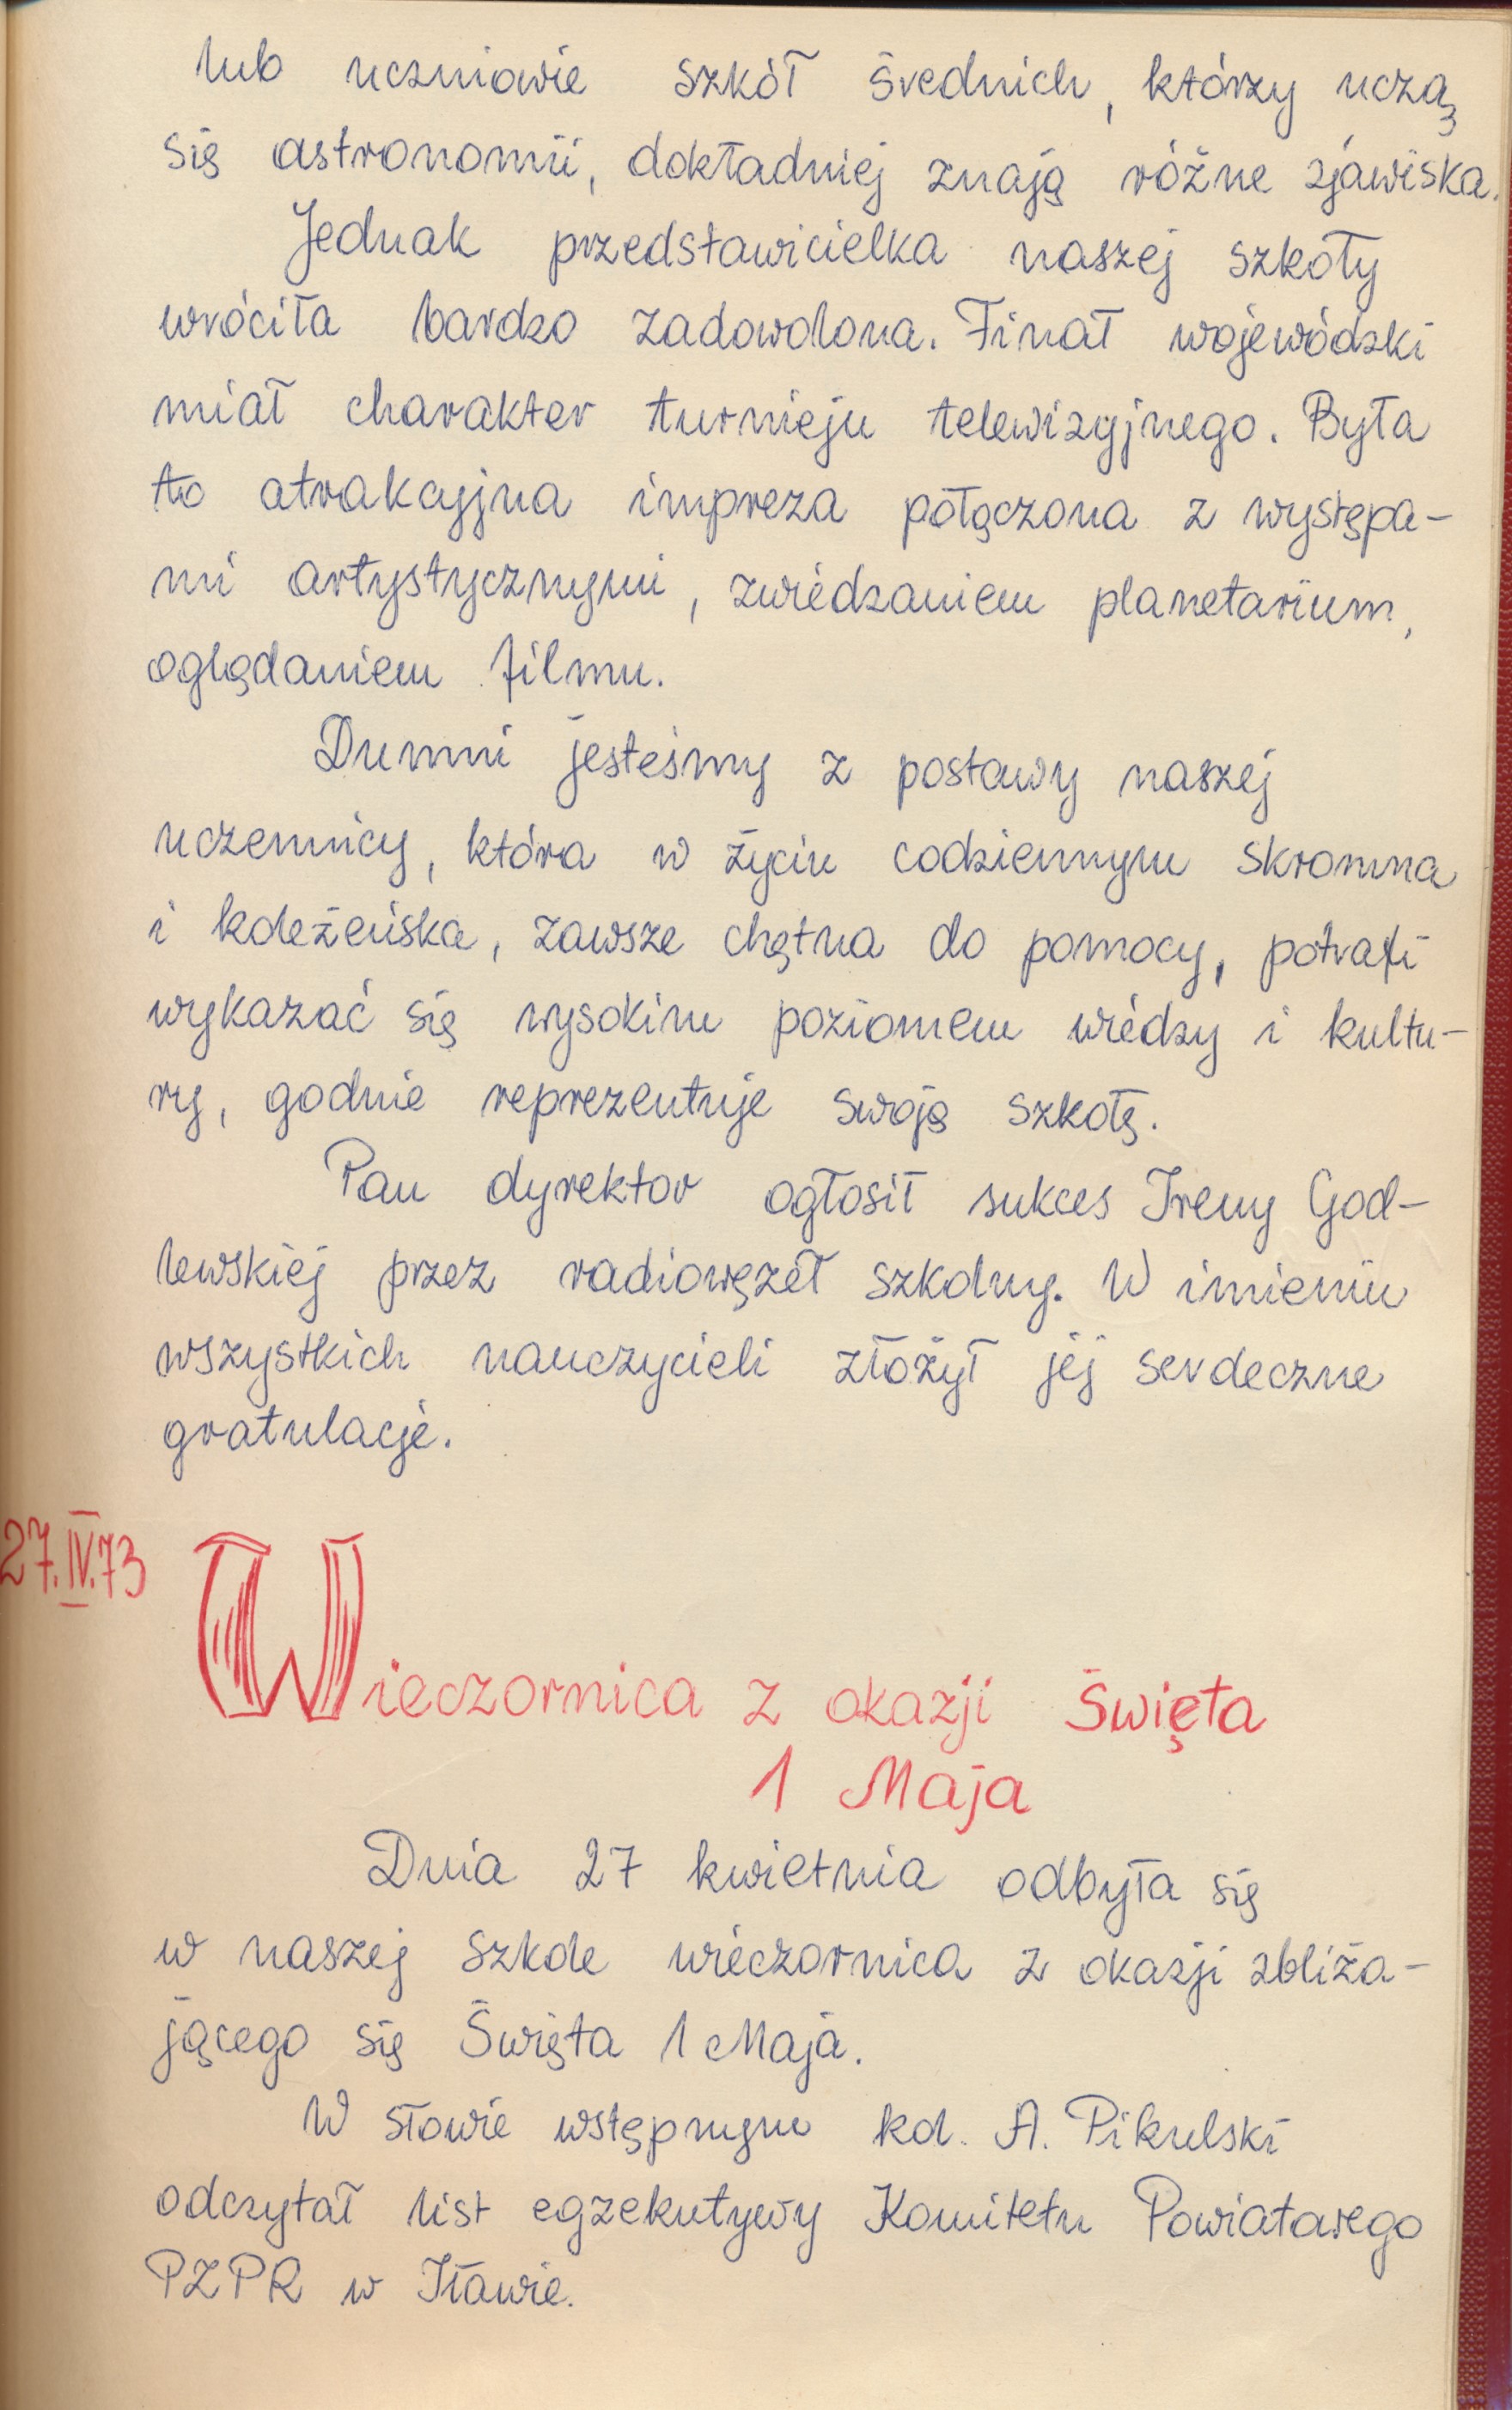 lub uczniowie szkół średnich, którzy uczą
się astronomii, dokładniej znają różne zjawiska.
Jednak przedstawicielka naszej szkoły
wróciła bardzo zadowolona. Finał wojewódzki
miał charakter turnieju telewizyjnego. Była
to atrakcyjna impreza połączona z występa-
mi artystycznymi, zwiedzaniem planetarium,
oglądaniem filmu.
Dumni jesteśmy z postawy naszej
uczennicy, która w życiu codziennym skromna
i koleżeńska, zawsze chętna do pomocy, potrafi
wykazać się wysokim poziomem wiedzy i kultu-
ry, godnie reprezentuje swoją szkołę.
Pan dyrektor ogłosił sukces Ireny God-
lewskiej przez radiowęzeł szkolny. W imieniu
wszystkich nauczycieli złożył jej serdeczne
gratulacje.
27.IV.73
Wieczornica z okazji Święta
1 Maja
Dnia 27 kwietnia odbyła się
w naszej szkole wieczornica z okazji zbliża-
jącego się Święta 1 Maja.
W słowie wstępnym kol. A. Pikulski
odczytał list egzekutywy Komitetu Powiatowego
PZPR w Iławie.